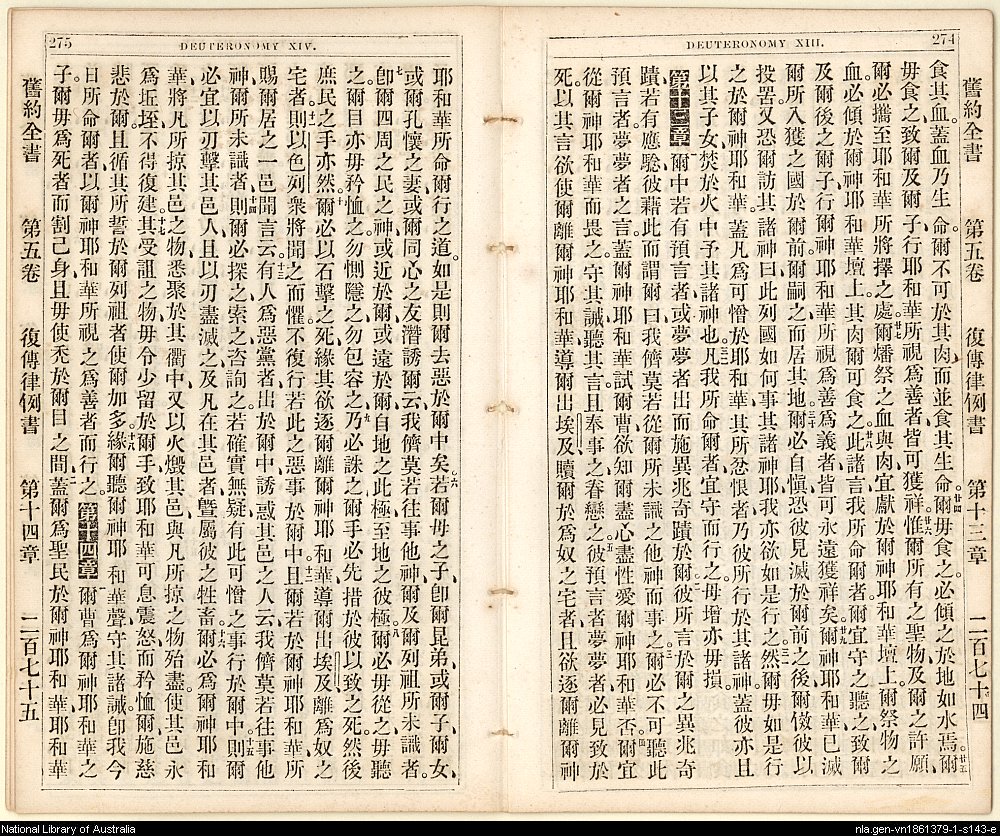 DEUTERONOMY XIII.
274
舊約全書 第五卷 復傳律例書 第十三章 二百七十四
食其血、蓋血乃生命、爾不可於其肉而並食其生命、廿四爾毋食之、必傾之於地如水焉、廿五爾
毋食之、致爾及爾子行耶和華所視爲善者、皆可獲祥、廿六惟爾所有之聖物、及爾之許願、
爾必攜至耶和華所將擇之處、廿七爾燔祭之血與肉、宜獻於爾神耶和華壇上、爾祭物之
血、必傾於爾神耶和華壇上、其肉爾可食之、廿八此諸言我所命爾者、爾宜守之聽之、致爾
及爾後之爾子行爾神耶和華所視爲善爲義者、皆可永遠獲祥矣、廿九爾神耶和華已滅
爾所入獲之國於爾前、爾嗣之而居其地、三十爾必自愼、恐彼見滅於爾前之後、爾傚彼以
投罟、又恐爾訪其諸神曰、此列國如何事其諸神耶、我亦欲如是行之然、三一爾毋如是行
之於爾神耶和華、蓋凡爲可憎於耶和華其所忿恨者、乃彼所行於其諸神、蓋彼亦且
以其子女、焚於火中、予其諸神也、三二凡我所命爾者、宜守而行之、毋增亦毋損、
第十三章 一爾中若有預言者、或夢夢者出、而施異兆奇蹟於爾、二彼所言於爾之異兆奇
蹟、若有應騐、彼藉此而謂爾曰、我儕莫若從爾所未識之他神而事之、三爾必不可聽此
預言者夢夢者之言、蓋爾神耶和華試爾曹、欲知爾盡心盡性愛爾神耶和華否、四爾宜
從爾神耶和華而畏之、守其誡、聽其言、且奉事之眷戀之、五彼預言者夢夢者、必見致於
死、以其言欲使爾離爾神耶和華、導爾出埃及、贖爾於爲奴之宅者、且欲逐爾離爾神
DEUTERONOMY XIV.
275
耶和華所命爾行之道、如是則爾去惡於爾中矣、六若爾毋之子、卽爾昆弟、或爾子、爾女、
或爾孔懷之妻、或爾同心之友、潛誘爾云、我儕莫若往事他神、爾及爾列祖所未識者、
七卽爾四周之民之神、或近於爾、或遠於爾、自地之此極、至地之彼極、八爾必毋從之、毋聽
之、爾目亦毋矜恤之、勿惻隱之、勿包容之、九乃必誅之、爾手必先措於彼、以致之死、然後
庶民之手亦然、十爾必以石擊之死、緣其欲逐爾離爾神耶和華導爾出埃及離爲奴之
宅者、十一則以色列衆將聞之而懼、不復行若此之惡事於爾中、十二且爾若於爾神耶和華所
賜爾居之一邑、聞言云、十三有人爲惡黨者出於爾中、誘惑其邑之人云、我儕莫若往事他
神、爾所未識者、十四則爾必探之索之咨詢之、若確實無疑、有此可憎之事行於爾中、十五則爾
必宜以刃擊其邑人、且以刃盡滅之、及凡在其邑者、曁屬彼之牲畜、十六爾必爲爾神耶和
華、將凡所掠其邑之物、悉聚於其衢中、又以火燬其邑、與凡所掠之物殆盡、使其邑永
爲坵垤、不得復建、十七其受詛之物、毋令少留於爾手、致耶和華可息震怒、而矜恤爾、施慈
悲於爾、且循其所誓於爾列祖者、使爾加多、十八緣爾聽爾神耶和華聲、守其諸誡、卽我今
日所命爾者、以爾神耶和華所視之爲善者而行之、第十四章 一爾曹爲爾神耶和華之
子、爾毋爲死者而割己身、且毋使禿於爾目之間、二蓋爾爲聖民於爾神耶和華、耶和華
舊約全書 第五卷 復傳律例書 第十四章 二百七十五
National Library of Australia
nla.gen-vn1861379-1-s143-e